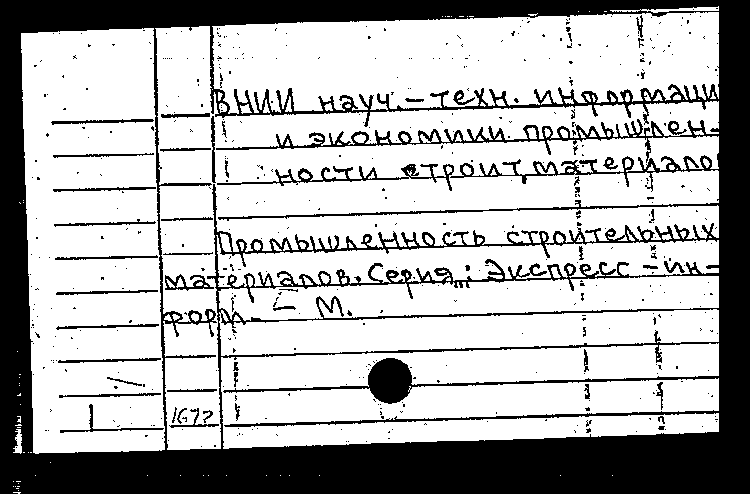 ВНИИ науч.-техн. информаци
и экономики промышлен-
ности строит. материало
Промышленность строительных
материалов. Серия„: Экспресс-ин-
форм. - М.
1672